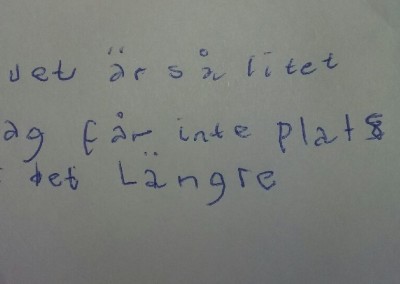 vet är så litet
ag får inte plats
det Längre